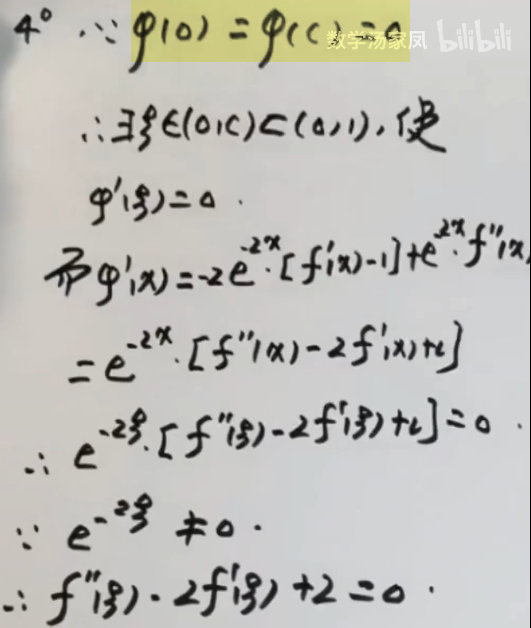 4° ∵ φ(0) = φ(c) = 0
数学汤家凤 bilibili
∴ ∃ξ∈(0,c)⊂(0,1), 使
φ'(ξ)=0.
而φ'(x)=-2e^{-2x}·[f'(x)-1]+e^{-2x}·f''(x)
=e^{-2x}·[f''(x)-2f'(x)+2]
∴ e^{-2ξ}·[f''(ξ)-2f'(ξ)+2]=0.
∵ e^{-2ξ} ≠0.
∴ f''(ξ)-2f'(ξ)+2=0.